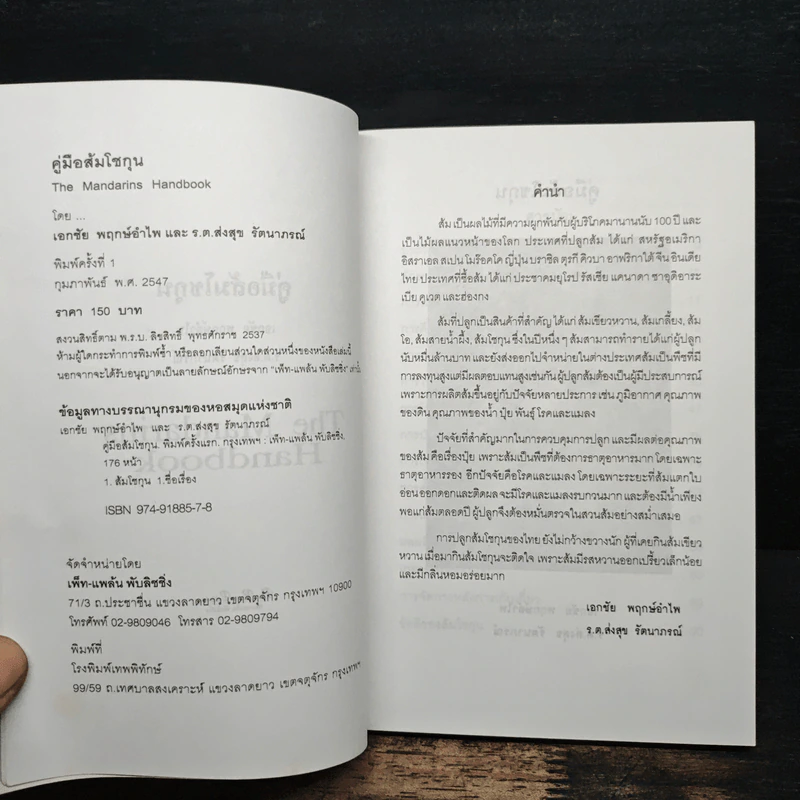 คู่มือส้มโชกุน
The Mandarins Handbook
โดย ...
เอกชัย พฤกษ์อำไพ และ ร.ต.ส่งสุข รัตนาภรณ์
พิมพ์ครั้งที่ 1
กุมภาพันธ์ พ.ศ. 2547
ราคา 150 บาท
สงวนสิทธิ์ตาม พ.ร.บ. ลิขสิทธิ์ พุทธศักราช 2537
ห้ามผู้ใดกระทำการพิมพ์ซ้ำ หรือลอกเลียนส่วนใดส่วนหนึ่งของหนังสือเล่มนี้
นอกจากจะได้รับอนุญาตเป็นลายลักษณ์อักษรจาก "เพ็ท-แพล้น พับลิชชิ่ง" เท่านั้น
ข้อมูลทางบรรณานุกรมของหอสมุดแห่งชาติ
เอกชัย พฤกษ์อำไพ และ ร.ต.ส่งสุข รัตนาภรณ์
คู่มือส้มโชกุน. พิมพ์ครั้งแรก. กรุงเทพฯ : เพ็ท-แพล้น พับลิชชิ่ง,
176 หน้า
1. ส้มโชกุน 1.ชื่อเรื่อง
ISBN 974-91885-7-8
จัดจำหน่ายโดย
เพ็ท-แพล้น พับลิชชิ่ง
71/3 ถ.ประชาชื่น แขวงลาดยาว เขตจตุจักร กรุงเทพฯ 10900
โทรศัพท์ 02-9809046 โทรสาร 02-9809794
พิมพ์ที่
โรงพิมพ์เทพพิทักษ์
99/59 ถ.เทศบาลสงเคราะห์ แขวงลาดยาว เขตจตุจักร กรุงเทพฯ
คำนำ
ส้ม เป็นผลไม้ที่มีความผูกพันกับผู้บริโภคมานานนับ 100 ปี และ
เป็นไม้ผลแนวหน้าของโลก ประเทศที่ปลูกส้ม ได้แก่ สหรัฐอเมริกา
อิสราเอล สเปน โมร็อคโค ญี่ปุ่น บราซิล ตุรกี คิวบา อาฟริกาใต้ จีน อินเดีย
ไทย ประเทศที่ซื้อส้ม ได้แก่ ประชาคมยุโรป รัสเซีย แคนาดา ซาอุดิอาระ
เบีย คูเวต และฮ่องกง
ส้มที่ปลูกเป็นสินค้าที่สำคัญ ได้แก่ ส้มเขียวหวาน, ส้มเกลี้ยง, ส้ม
โอ, ส้มสายน้ำผึ้ง, ส้มโชกุน ซึ่งในปีหนึ่ง ๆ ส้มสามารถทำรายได้แก่ผู้ปลูก
นับหมื่นล้านบาท และยังส่งออกไปจำหน่ายในต่างประเทศส้มเป็นพืชที่มี
การลงทุนสูงแต่มีผลตอบแทนสูงเช่นกัน ผู้ปลูกส้มต้องเป็นผู้มีประสบการณ์
เพราะการผลิตส้มขึ้นอยู่กับปัจจัยหลายประการ เช่น ภูมิอากาศ คุณภาพ
ของดิน คุณภาพของน้ำ ปุ๋ย พันธุ์ โรคและแมลง
ปัจจัยที่สำคัญมากในการควบคุมการปลูก และมีผลต่อคุณภาพ
ของส้ม คือเรื่องปุ๋ย เพราะส้มเป็นพืชที่ต้องการธาตุอาหารมาก โดยเฉพาะ
ธาตุอาหารรอง อีกปัจจัยคือโรคและแมลง โดยเฉพาะระยะที่ส้มแตกใบ
อ่อน ออกดอกและติดผล จะมีโรคและแมลงรบกวนมาก และต้องมีน้ำเพียง
พอแก่ส้มตลอดปี ผู้ปลูกจึงต้องหมั่นตรวจในสวนส้มอย่างสม่ำเสมอ
การปลูกส้มโชกุนของไทย ยังไม่กว้างขวางนัก ผู้ที่เคยกินส้มเขียว
หวาน เมื่อมากินส้มโชกุนจะติดใจ เพราะส้มมีรสหวานออกเปรี้ยวเล็กน้อย
และมีกลิ่นหอมอร่อยมาก
เอกชัย พฤกษ์อำไพ
ร.ต.ส่งสุข รัตนาภรณ์